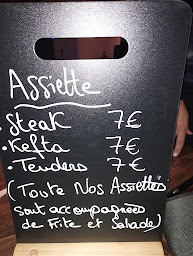 Assiette
• Steak 7€
• Kefta 7€
• Tenders 7€
(Toute Nos Assiettes
sont accompagnées
de Frite et Salade)